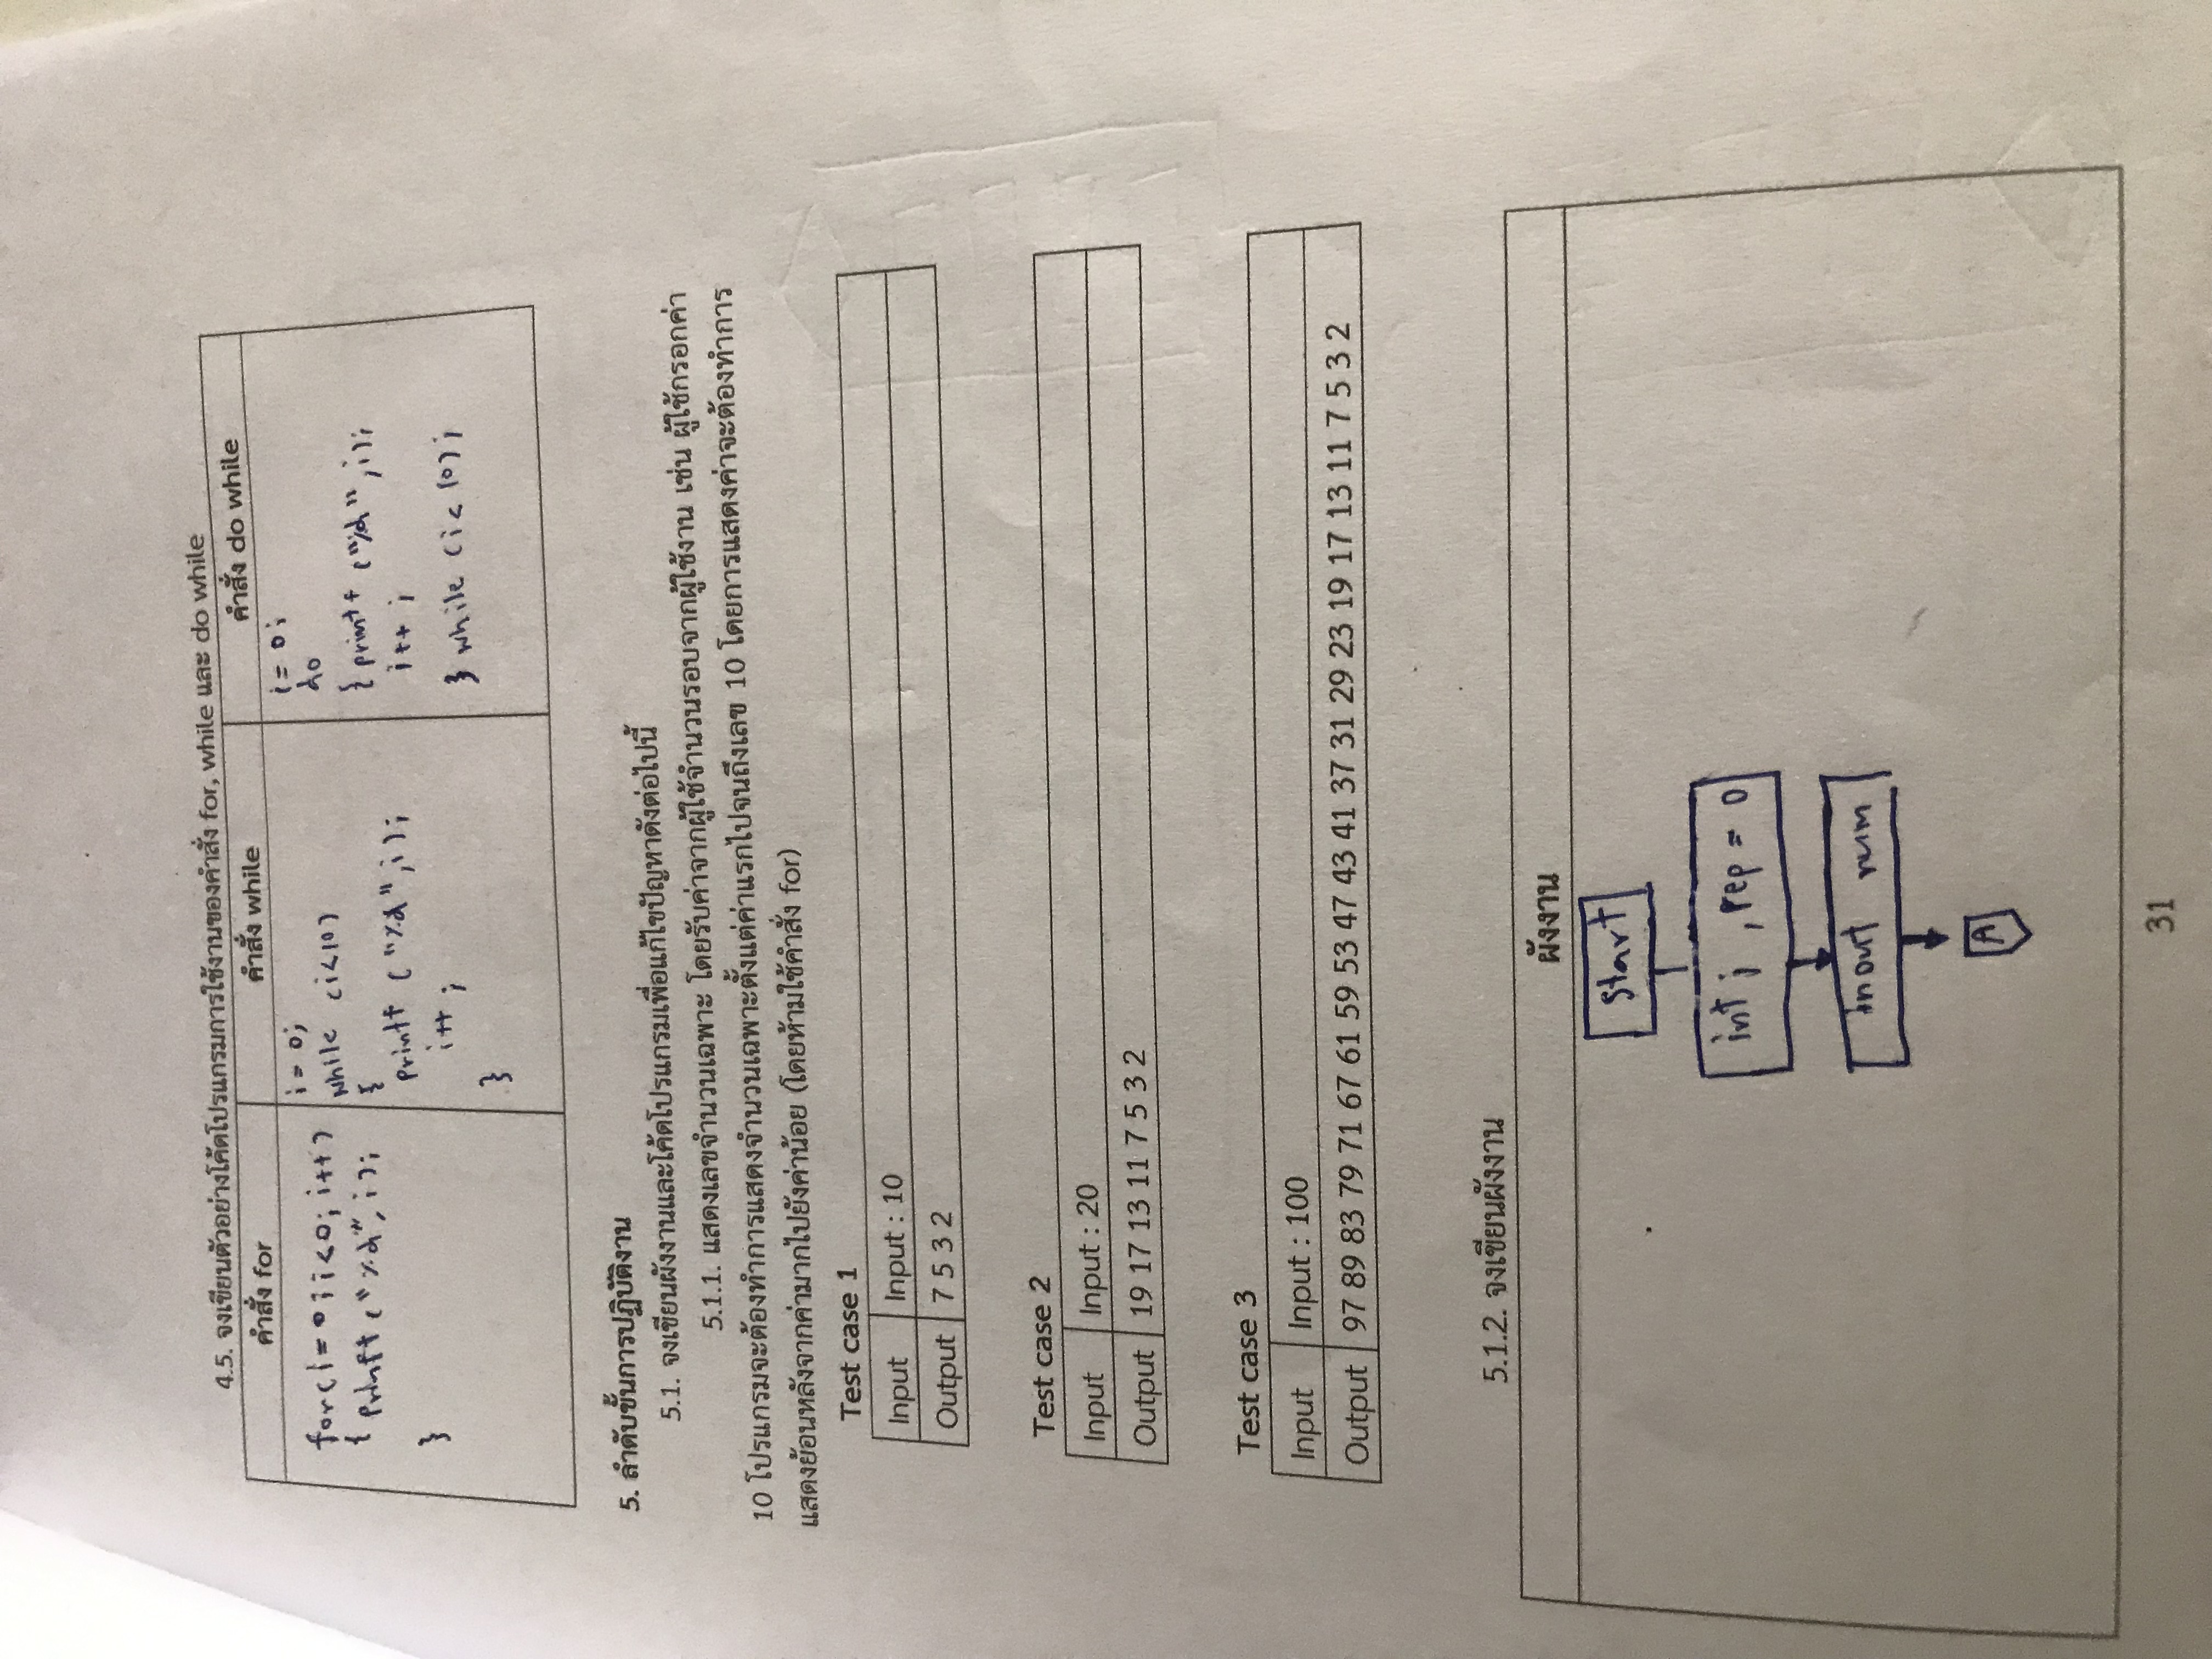 4.5. จงเขียนตัวอย่างโค้ดโปรแกรมการใช้งานของคำสั่ง for, while และ do while
คำสั่ง for
for(i=0;i<0;i++)
{ printf("%d",i);
}
คำสั่ง while
i=0;
while (i<10)
{
printf ("%d",i);
i++;
}
คำสั่ง do while
i=0;
do
{ printf ("%d",i);
i++;
} while (i<10);
5. ลำดับขั้นการปฏิบัติงาน
5.1. จงเขียนผังงานและโค้ดโปรแกรมเพื่อแก้ไขปัญหาดังต่อไปนี้
5.1.1. แสดงเลขจำนวนเฉพาะ โดยรับค่าจากผู้ใช้จำนวนรอบจากผู้ใช้งาน เช่น ผู้ใช้กรอกค่า
10 โปรแกรมจะต้องทำการแสดงจำนวนเฉพาะตั้งแต่ค่าแรกไปจนถึงเลข 10 โดยการแสดงค่าจะต้องทำการ
แสดงย้อนหลังจากค่ามากไปยังค่าน้อย (โดยห้ามใช้คำสั่ง for)
Test case 1
Input Input : 10
Output 7 5 3 2
Test case 2
Input Input : 20
Output 19 17 13 11 7 5 3 2
Test case 3
Input Input : 100
Output 97 89 83 79 71 67 61 59 53 47 43 41 37 31 29 23 19 17 13 11 7 5 3 2
5.1.2. จงเขียนผังงาน
ผังงาน
Start
int j , rep = 0
num
A
31